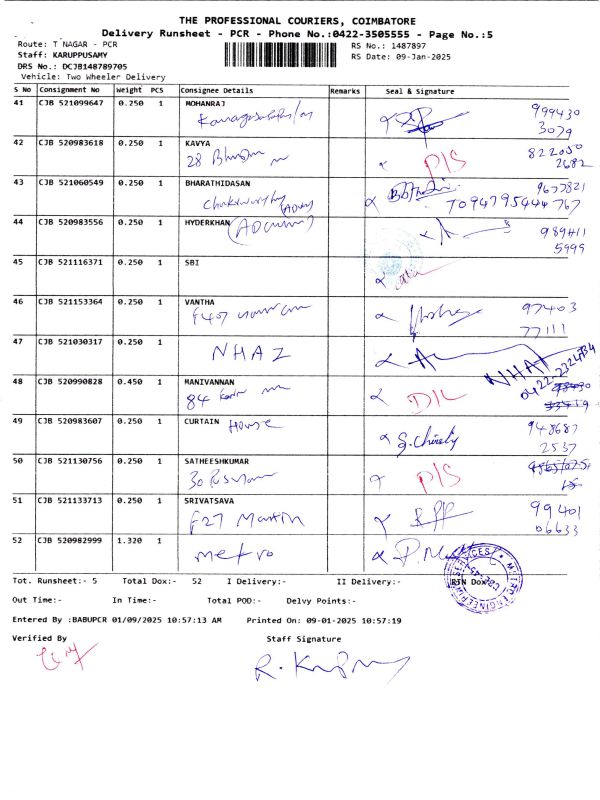 THE PROFESSIONAL COURIERS, COIMBATORE
Delivery Runsheet - PCR - Phone No.:0422-3505555 - Page No.:5
Route: T NAGAR - PCR
RS No.: 1487897
Staff: KARUPPUSAMY
RS Date: 09-Jan-2025
DRS No.: DCJB148789705
Vehicle: Two Wheeler Delivery
S No Consignment No Weight PCS Consignee Details Remarks Seal & Signature
41 CJB 521099647 0.250 1 MOHANRAJ
999430
3079
42 CJB 520983618 0.250 1 KAVYA
28 P/S 822050
2682
43 CJB 521060549 0.250 1 BHARATHIDASAN
9677821
TO 94795444767
44 CJB 520983556 0.250 1 HYDERKHAN
989411
5999
45 CJB 521116371 0.250 1 SBI
46 CJB 521153364 0.250 1 VANTHA
F407 97403
77111
47 CJB 521030317 0.250 1
NHAI NHAI
0422-2324734
48 CJB 520990828 0.450 1 MANIVANNAN
84 D/L
49 CJB 520983607 0.250 1 CURTAIN House
948687
2537
50 CJB 521130756 0.250 1 SATHEESHKUMAR
30 P/S
51 CJB 521133713 0.250 1 SRIVATSAVA
F27 Martin 99401
06633
52 CJB 520982999 1.320 1
metro
Tot. Runsheet:- 5 Total Dox:- 52 I Delivery:- II Delivery:- RTN Dox:-
Out Time:- In Time:- Total POD:- Delvy Points:-
Entered By :BABUPCR 01/09/2025 10:57:13 AM Printed On: 09-01-2025 10:57:19
Verified By Staff Signature